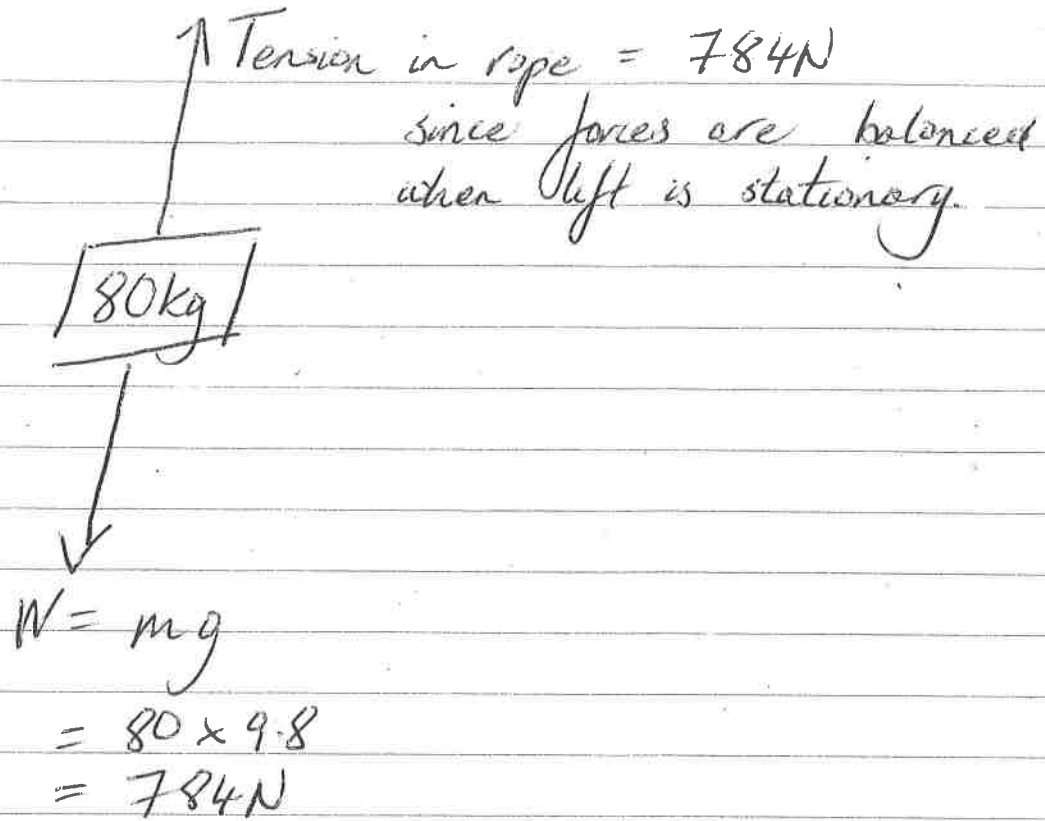 Tension in rope = 784N
since forces are balanced
when lift is stationary.
80kg
W = mg
= 80 x 9.8
= 784N